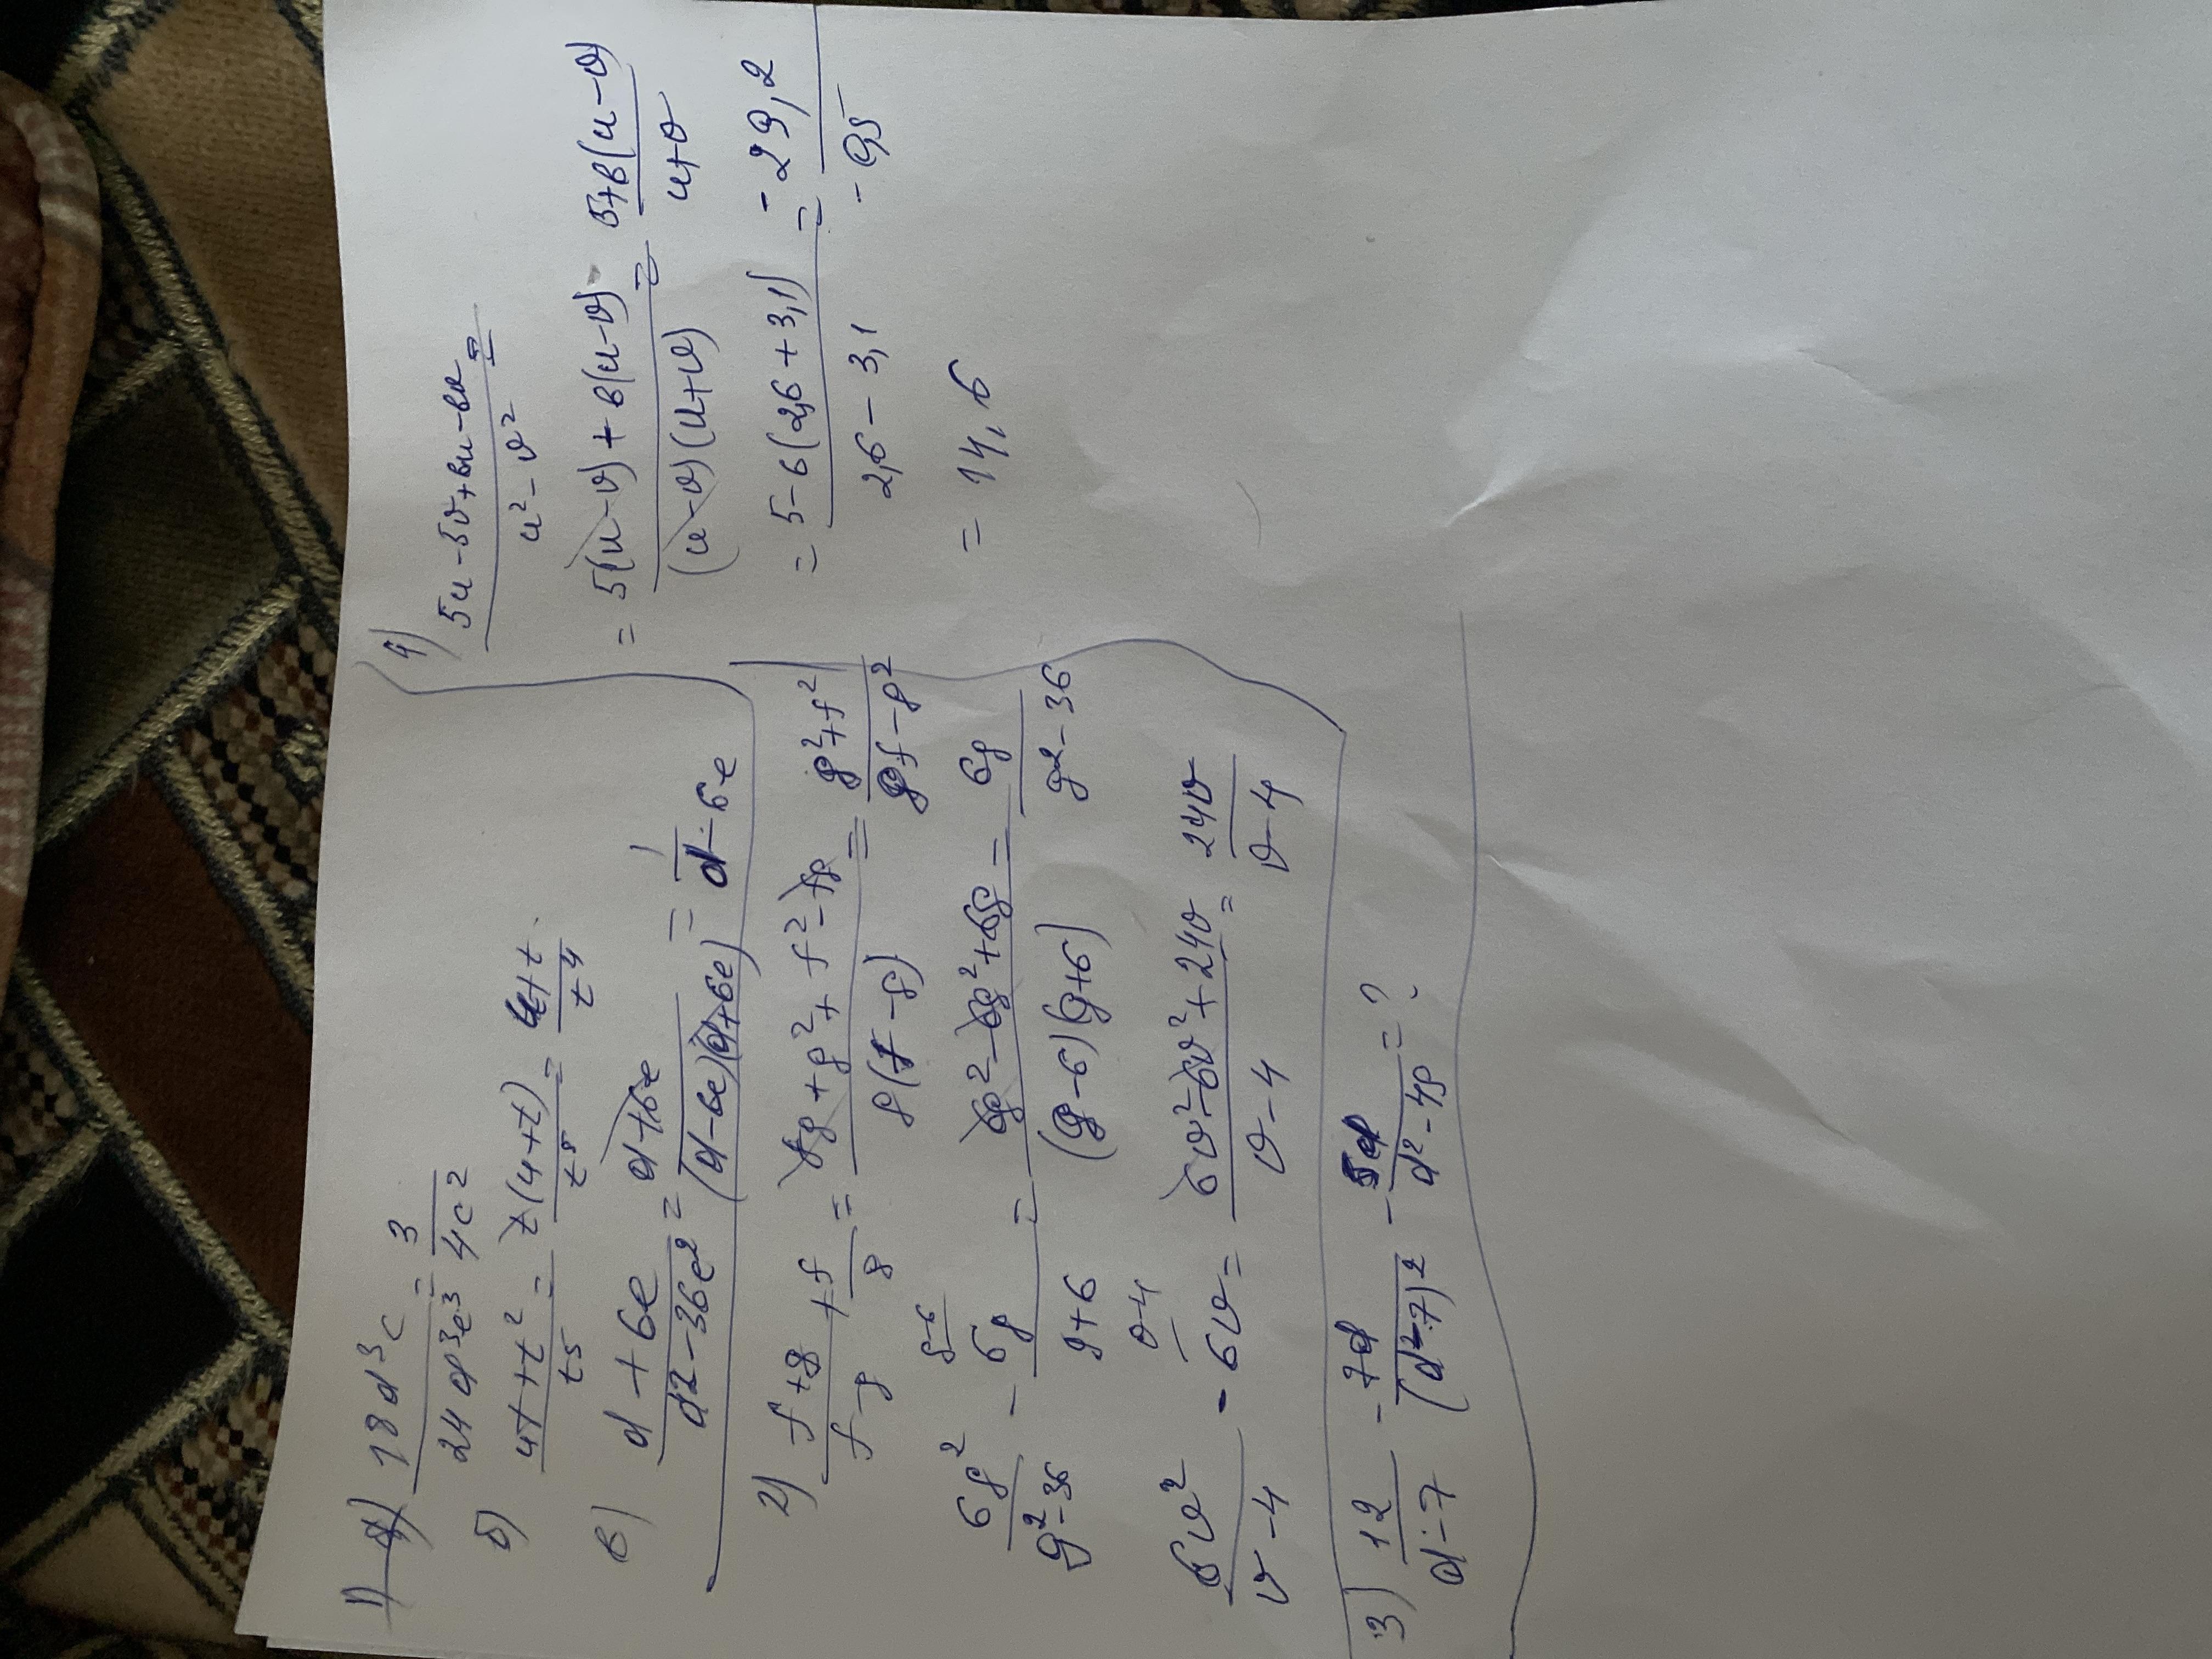 1) а) 18d³c / 24d³c³ = 3 / 4c²
б) (4t + t²) / t⁵ = t(4+t) / t⁵ = (4+t) / t⁴
в) (d + 6e) / (d² - 36e²) = (d+6e) / (d-6e)(d+6e) = 1 / (d-6e)
2) (f+g) / (f-g) + f / g = (fg + g² + f² - fg) / g(f-g) = (g²+f²) / (gf-g²)
6g² / (g²-36) - 6g / (g+6) = (6g² - 6g² + 6g) / (g-6)(g+6) = 6g / (g²-36)
6v² / (v-4) - 6v = (6v² - 6v² + 24v) / (v-4) = 24v / (v-4)
3) 12 / (d-7) - 7d / (d-7)² - 5d / (d²-49) = ?
4) (5u - 5v + 6u - 6v) / (u² - v²) =
= (5(u-v) + 6(u-v)) / (u-v)(u+v) = (5+6(u-v)) / (u+v)
= (5-6(2,6+3,1)) / (2,6-3,1) = -29,2 / -0,5
= 14,6